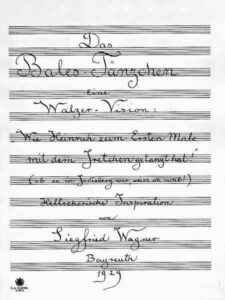 Das
Bales-Tänzchen
eine
Walzer-Vision:
"Wie Heinrich zum Ersten Male
mit dem Gretchen getanzt hat!"
(ob es im war, weiss ich nicht!)
Inspiration
von
Siegfried Wagner
Bayreuth
1929